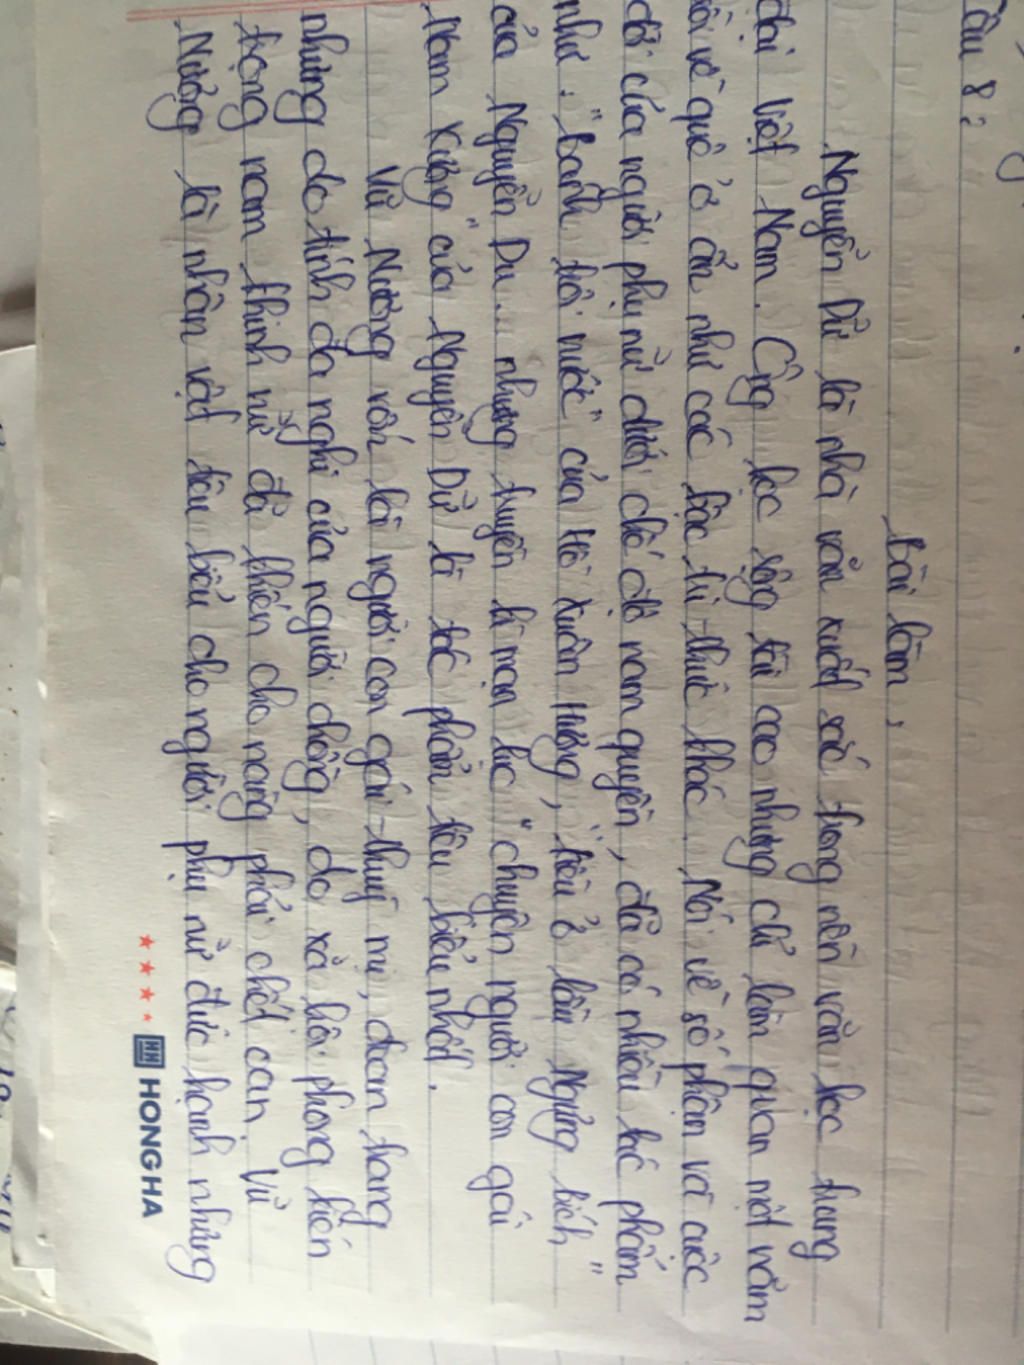 Câu 8:
Bài làm:
Nguyễn Dữ là nhà văn xuất sắc trong nền văn học trung
đại Việt Nam. Ông học rộng tài cao nhưng chỉ làm quan một năm
rồi về quê ở ẩn như các bậc tri thức khác. Nói về số phận và cuộc
đời của người phụ nữ dưới chế độ nam quyền, đã có nhiều tác phẩm
như: "Bánh trôi nước" của Hồ Xuân Hương, "Kiều ở lầu Ngưng Bích"
của Nguyễn Du... nhưng truyền kì mạn lục "chuyện người con gái
Nam Xương" của Nguyễn Dữ là tác phẩm tiêu biểu nhất.
Vũ Nương vốn là người con gái thuỳ mị, đoan trang
nhưng do tính đa nghi của người chồng, do xã hội phong kiến
trọng nam khinh nữ đã khiến cho nàng phải chết oan. Vũ
Nương là nhân vật tiêu biểu cho người phụ nữ đức hạnh nhưng
HH HONG HA